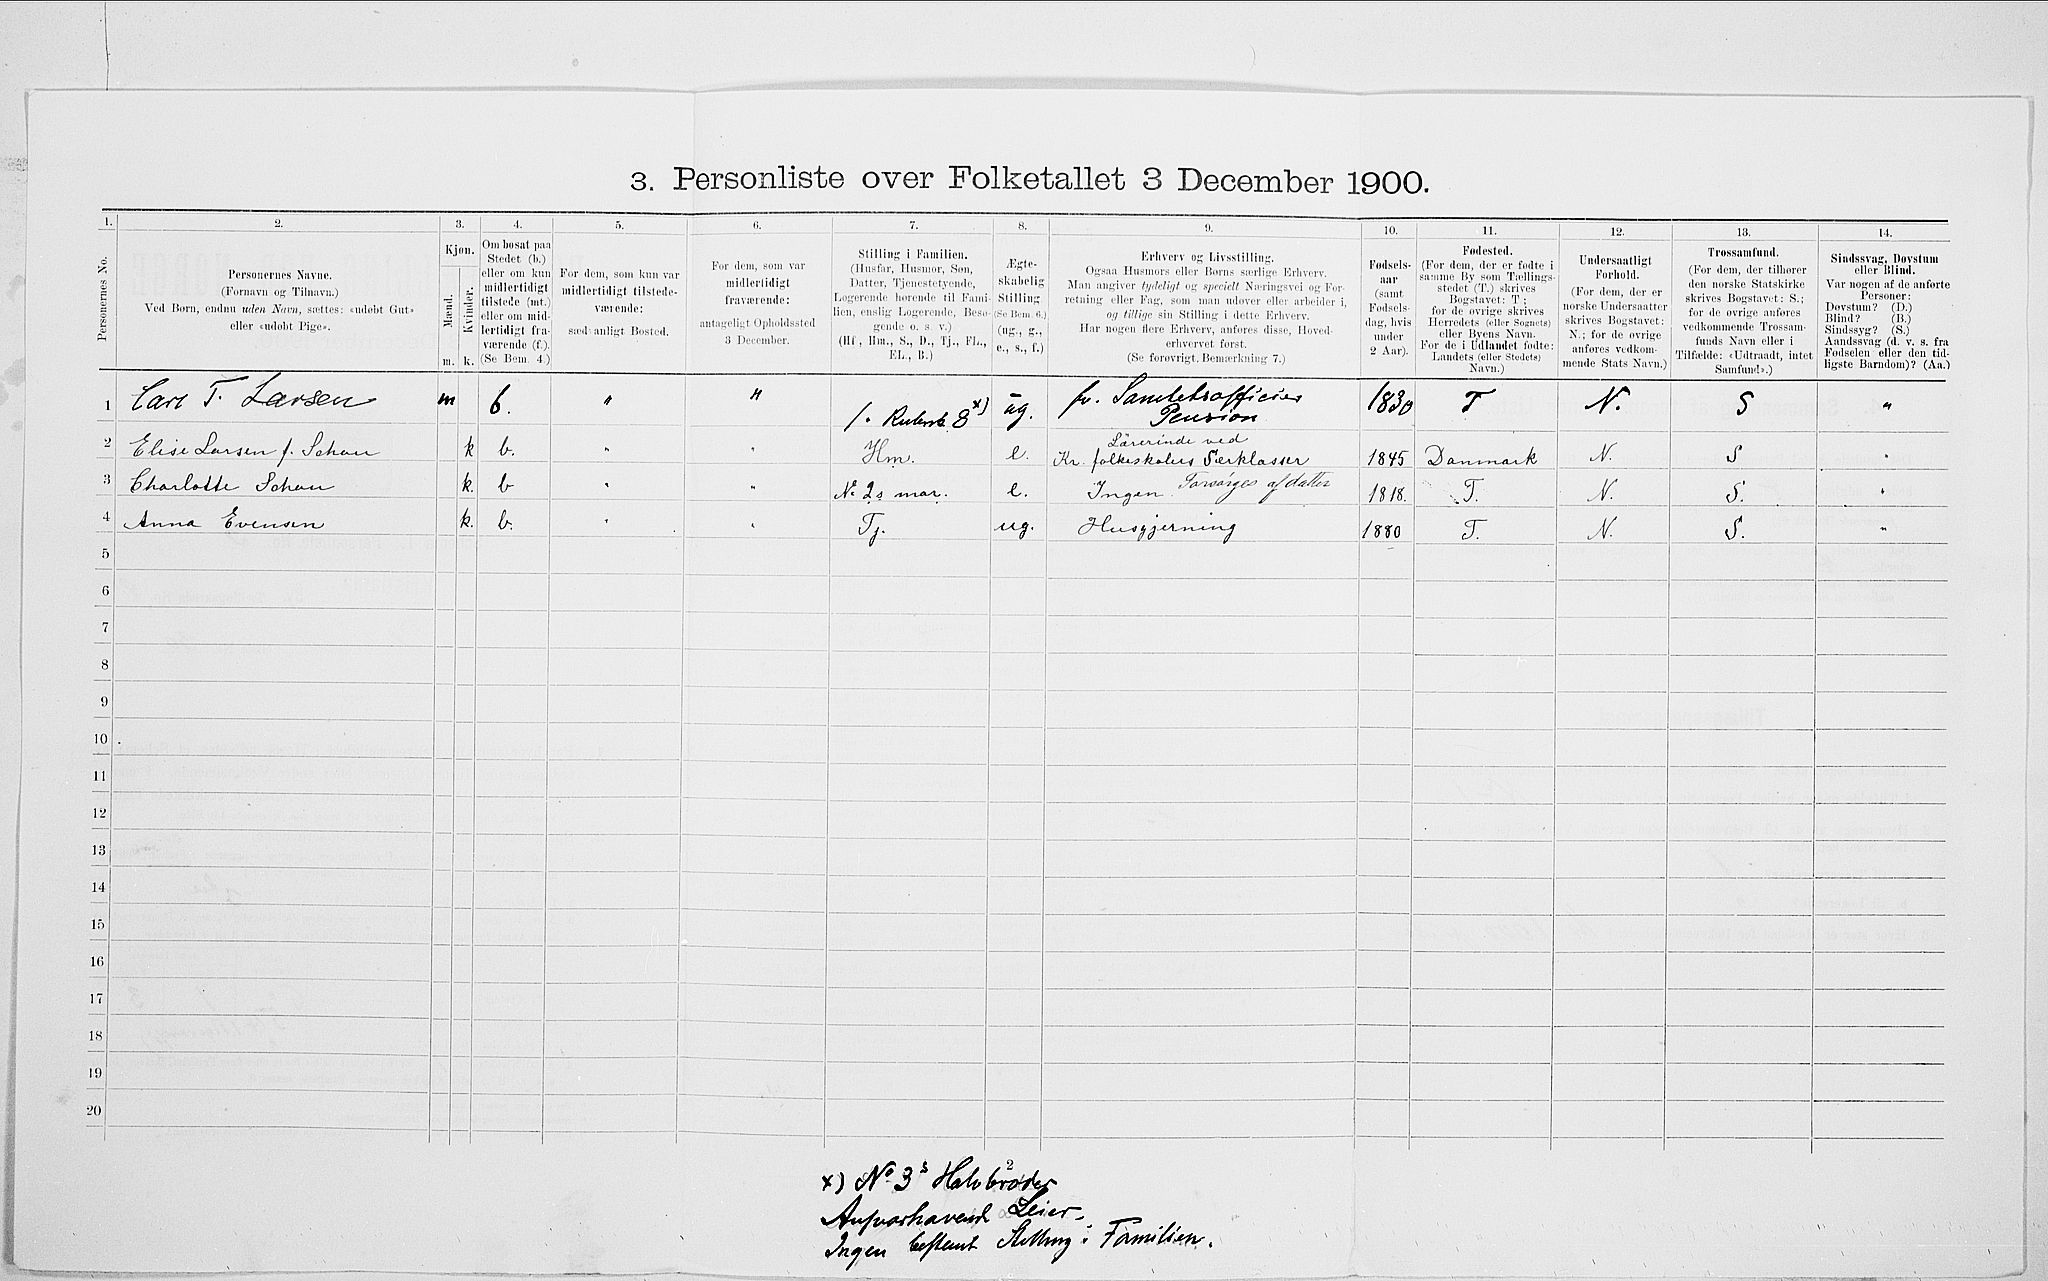 3. Personliste over Folketallet 3 December 1900.
1. 2. 3. 4. 5. 6. 7. 8. 9. 10. 11. 12. 13. 14.
Personernes No.
Personernes Navne.
(Fornavn og Tilnavn.)
Ved Børn, endnu uden Navn, sættes: «udøbt Gut»
eller «udøbt Pige».
Kjøn.
Mænd.
Kvinder.
m. k.
Om bosat paa
Stedet (b.)
eller om kun
midlertidigt
tilstede (mt.)
eller om mid-
lertidigt fra-
værende (f.).
(Se Bem. 4.)
For dem, som kun var
midlertidigt tilstede-
værende:
sædvanligt Bosted.
For dem, som var
midlertidigt
fraværende:
antageligt Opholdssted
3 December.
Stilling i Familien.
(Husfar, Husmor, Søn,
Datter, Tjenestetyende,
Logerende hørende til Fami-
lien, enslig Logerende, Besø-
gende o. s. v.)
(Hf., Hm., S., D., Tj., FL.,
EL., B.)
Ægte-
skabelig
Stilling
(Se Bem. 6.)
(ug., g.,
e., s., f.)
Erhverv og Livsstilling.
Ogsaa Husmors eller Børns særlige Erhverv.
Man angiver tydeligt og specielt Næringsvei og For-
retning eller Fag, som man udøver eller arbeider i,
og tillige sin Stilling i dette Erhverv.
Har nogen flere Erhverv, anføres disse, Hoved-
erhvervet først.
(Se forøvrigt Bemærkning 7.)
Fødsels-
aar
(samt
Fødsels-
dag, hvis
under
2 Aar).
Fødested.
(For dem, der er fødte i
samme By som Tællings-
stedet (T.) skrives
Bogstavet: T;
for de øvrige skrives
Herredets (eller Sognets)
eller Byens Navn.
For de i Udlandet fødte:
Landets (eller Stedets)
Navn.)
Undersaatligt
Forhold.
(For dem, der er
norske Undersaatter
skrives Bogstavet:
N.; for de øvrige
anføres vedkom-
mende Stats Navn.)
Trossamfund.
(For dem, der tilhører
den norske Statskirke
skrives Bogstavet: S.;
for de øvrige anføres
vedkommende Trossam-
funds Navn eller i
Tilfælde: «Udtraadt, intet
Samfund».)
Sindssvag, Døvstum
eller Blind.
Var nogen af de anførte
Personer:
Døvstum? (D.)
Blind? (B.)
Sindssyg? (S.)
Aandssvag (d. v. s. fra
Fødselen eller den tid-
ligste Barndom)? (Aa.)
1 Carl T. Larsen m b. " " x) ug. fv. Pension 1830 T N. S "
2 Elise Larsen f. Schou k b. " " Hm. e. Lärerinde ved
Kr. folkeskolers Særklasser 1845 Danmark N. S "
3 Charlotte Schou k. b " " No 2s mor. e. Ingen Forsørges af datter 1818. T. N. S. "
4 Anna Evensen k. b. " " Tj. ug. Husgjerning 1880 T. N. S. "
5
6
7
8
9
10
11
12
13
14
15
16
17
18
19
20
x) No 3s Halvbroder
Leier.
Ingen bestemt Stilling i Familien.